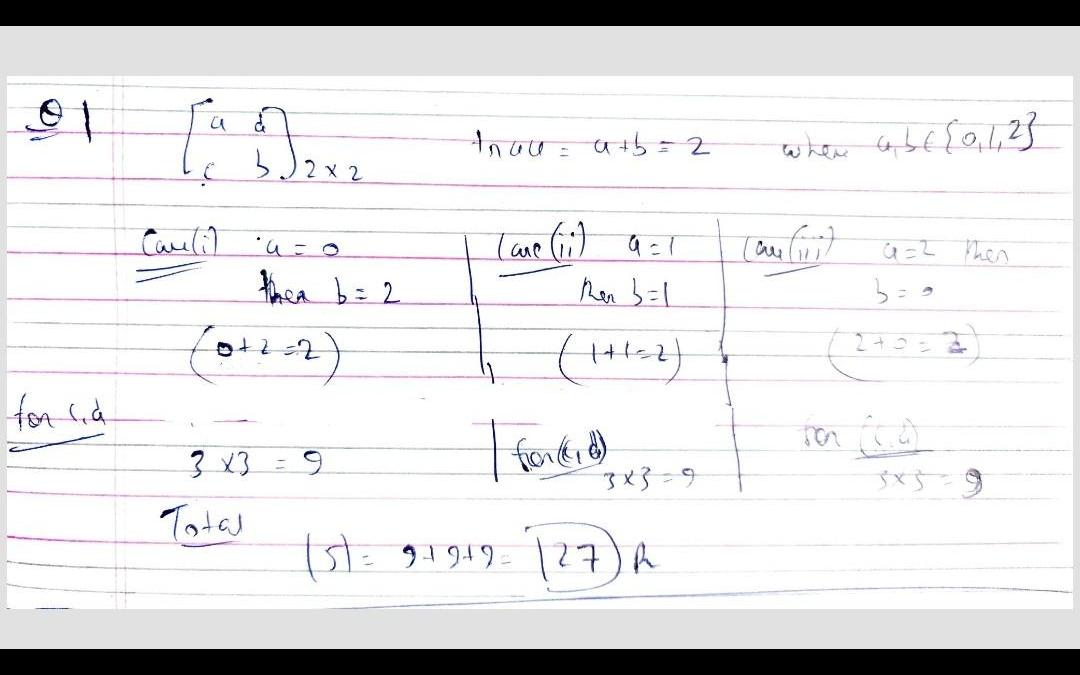 Q1
[a d
c b] 2×2
trace = a+b = 2 where a,b ∈ {0,1,2}
Case(i) a = 0
then b = 2
(0+2=2)
Case(ii) a=1
then b=1
(1+1=2)
Case(iii) a=2 then
b=0
(2+0=2)
for c,d
3×3 = 9
for(c,d)
3×3=9
for (c,d)
3×3=9
Total
|S|= 9+9+9= 27